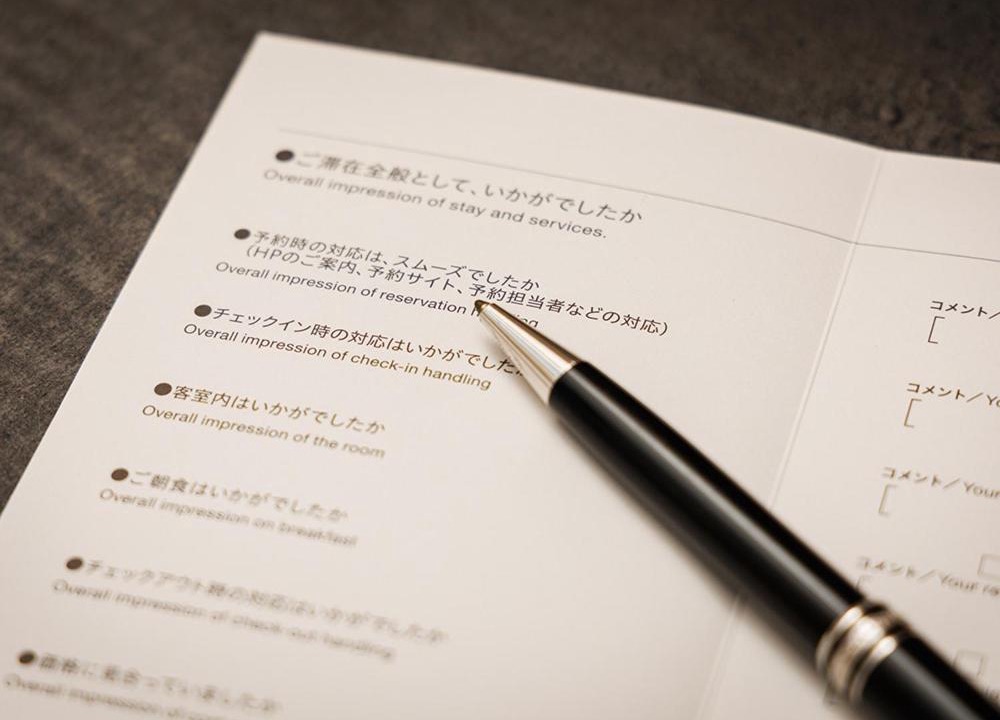 ●ご滞在全般として、いかがでしたか
Overall impression of stay and services.
●予約時の対応は、スムーズでしたか
（HPのご案内、予約サイト、予約担当者などの対応）
Overall impression of reservation
●チェックイン時の対応はいかがでした
Overall impression of check-in handling
●客室内はいかがでしたか
Overall impression of the room
●ご朝食はいかがでしたか
Overall impression on breakfast
●チェックアウト時の対応はいかがでしたか
Overall impression of check-out handling
Overall impression of
コメント／
[
コメント／Yo
[
コメント／Your
[
コメント／Your re